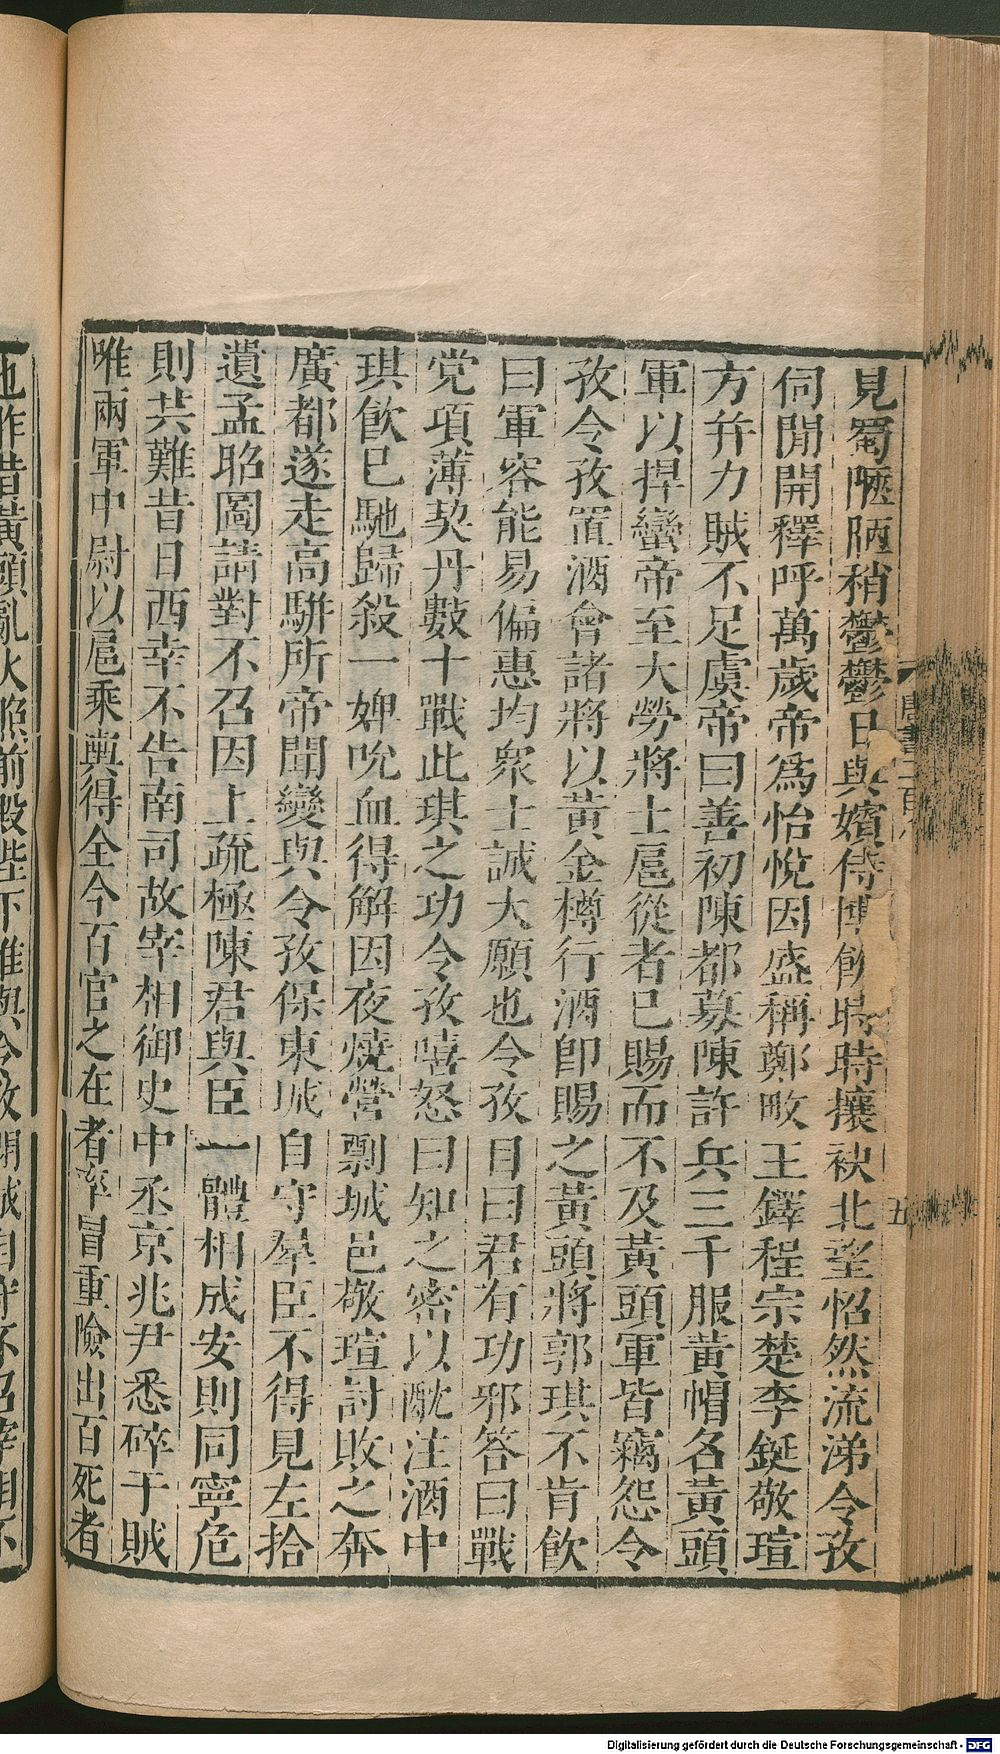 見蜀陋稍鬱鬱日與嬪侍博飲時時攘袂北望怊然流涕令孜
伺閒開釋呼萬歲帝爲怡悅因盛稱鄭畋王鐸程宗楚李鋌敬瑄
方幷力賊不足虞帝曰善初陳都募陳許兵三千服黃帽名黃頭
軍以捍蠻帝至大勞將士扈從者已賜而不及黃頭軍皆竊怨令
孜令孜置酒會諸將以黃金樽行酒卽賜之黃頭將郭琪不肯飮
曰軍容能易偏惠均衆士誠大願也令孜目曰君有功邪答曰戰
党項薄契丹數十戰此琪之功令孜嘻怒曰知之密以酖注酒中
琪飮已馳歸殺一婢吮血得解因夜燒營剽城邑敬瑄討敗之奔
廣都遂走高駢所帝聞變與令孜保東城自守羣臣不得見左拾
遺孟昭圖請對不召因上疏極陳君與臣一體相成安則同寧危
則共難昔日西幸不告南司故宰相御史中丞京兆尹悉碎于賊
唯兩軍中尉以扈乘輿得全今百官之在者率冒重險出百死者
唐書二百八
五
也昨昔黃頭亂火照前殿陛下惟與令孜閉城自守不召宰相不
Digitalisierung gefördert durch die Deutsche Forschungsgemeinschaft - DFG